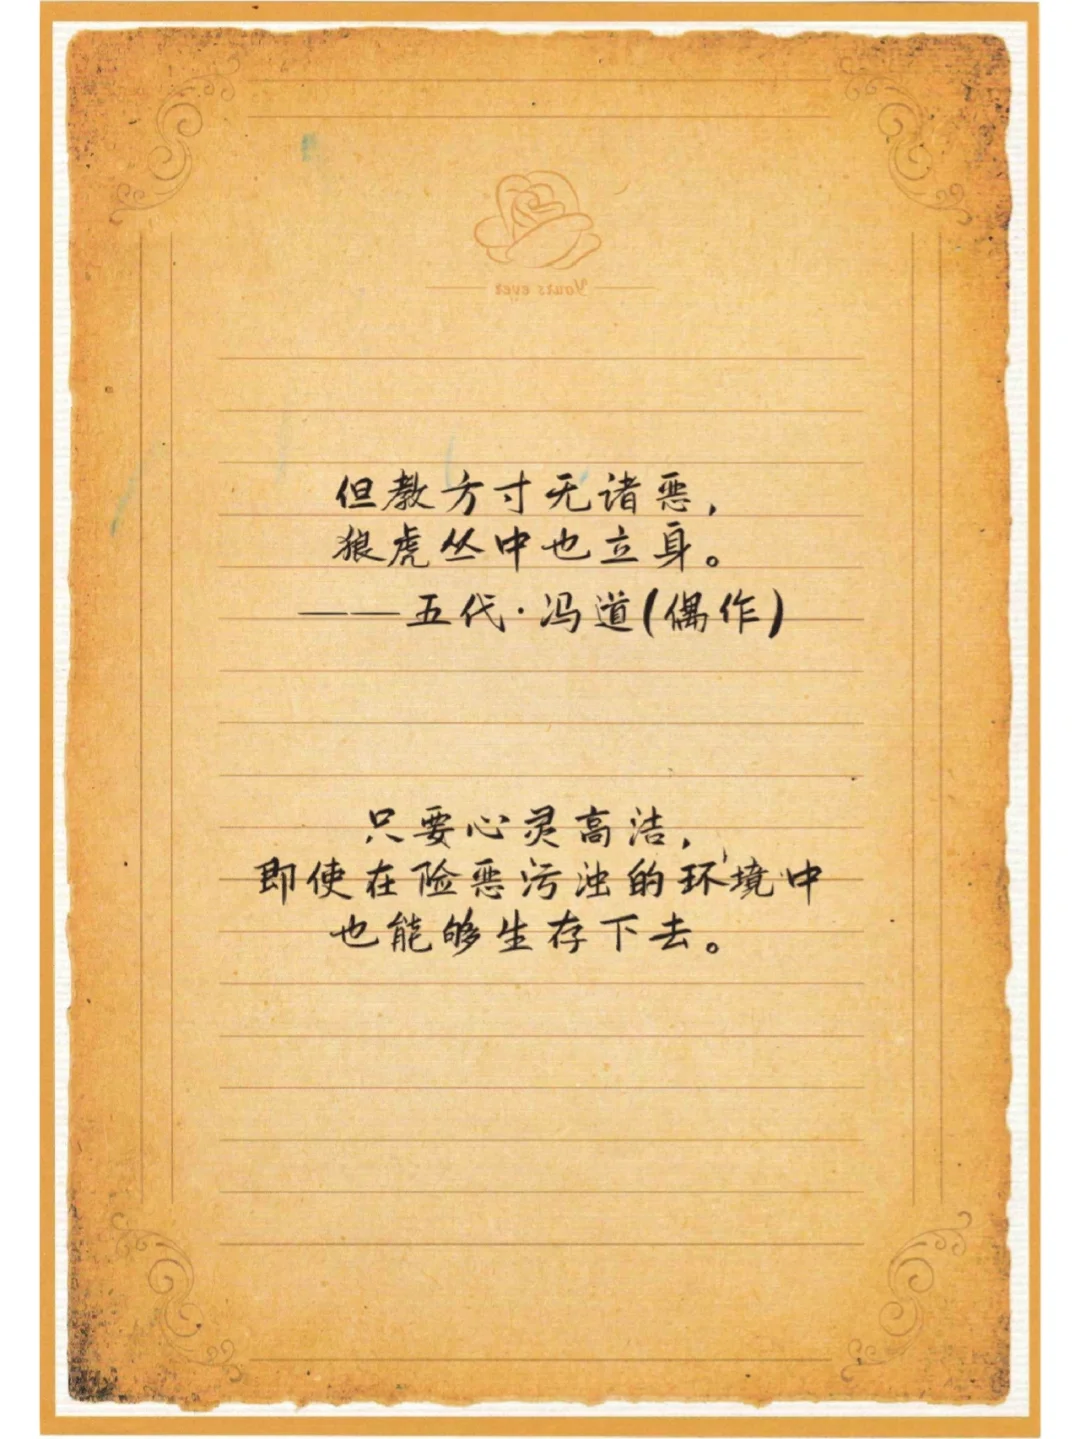 Yours ever
但教方寸无诸恶，
狼虎丛中也立身。
——五代·冯道(偶作)
只要心灵高洁，
即使在险恶污浊的环境中
也能够生存下去。